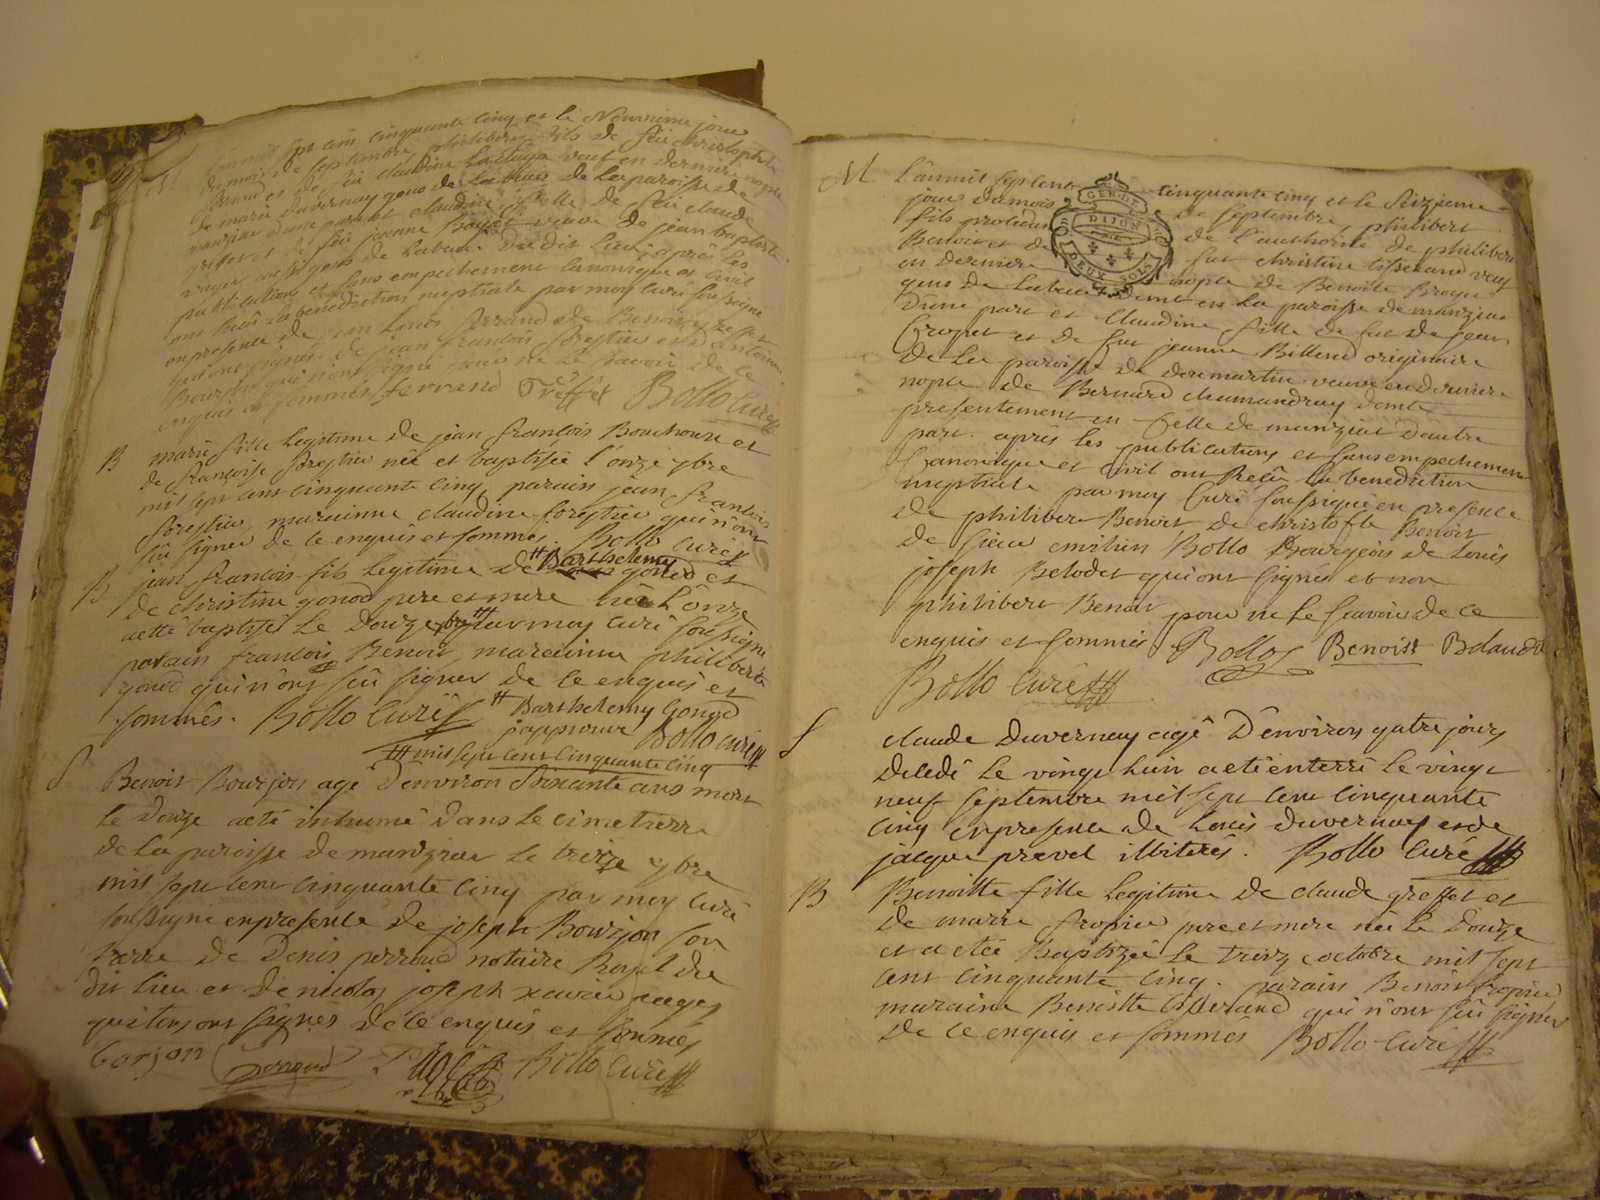 M
sept cent cinquante cinq et le Neuvieme jour
du mois de septembre philibert fils de feu christophle
ferrand et de feu claudine veuf en derniere nopce
de marie duvernay gens de Labeur de La paroisse de
manziat d'une part et claudine fille de feu claude
greffet et de feu jeanne Boyat veuve de jean baptiste
voyer aussi gens de Labeur du dit Lieu apres les
publications et sans empechement canonique et civil
ont Receu La benediction nuptiale par moy curé soussigné
en presence de jean Louis ferrand de Benoit greffet
qui ont signés de jean francois forestier et d'antoine
Bourjon qui n'ont signé pour ne le savoir de ce
enquis et sommés ferrand Greffet Bollo Curé
B
marie fille Legitime de jean francois Bouchoux et
de francoise forestier née et baptisée l'onze 7bre
mil sept cens cinquante cinq, parain jean francois
forestier, maraine claudine forestier qui n'ont
sû signer de ce enquis et sommes. Bollo Curé
B
jean francois fils Legitime de # Barthelemy gonod et
de christine gonod pere et mere né L'onze
a eté baptisé Le Douze 7bre ## par moy curé soussigné
parain francois Benoit, maraine philiberte
gonod qui n'ont sû signer de ce enquis et
sommés. Bollo Curé # Barthelemy Gonod
j'approuve Bollo curé
## mil sept cent cinquante cinq
S
Benoit Bourjon agé d'environ soixante ans mort
Le Douze a eté inhumé Dans Le cimetierre
de La paroisse de manziat Le treize 7bre
mil sept cent cinquante cinq par moy curé
soussigné en presence de joseph Bourjon son
frere de Denis perroud notaire Royal du
dit Lieu et de nicolas joseph xavier pages
qui tous ont signés de ce enquis et sommés
Borjon perroud Bollo Curé
M
L'an mil sept cent cinquante cinq et le seizieme
jour du mois de septembre, philibert
fils de l'authorité de philibert
Benoit et de fut christine tisserand veuf
en derniere nopce de Benoite Broyer
gens de Labeur demt en La paroisse de manziat
d'une part et Claudine fille de fut de jean
Croyet et de fut jeanne Billend originaire
de La paroisse de dommartin veuve en derniere
nopce de Bernard chamandray demte
presentement en Celle de manziat d'autre
part. apres les publications et sans empechement
Canonique et civil ont Reçû la benediction
nuptiale par moy Curé soussigné en presence
de philibert Benoit de christofle Benoit
de sieur emilien Bollo Bourgeois de Louis
joseph Belodet qui ont signés et non
philibert Benoit pour ne le scavoir de ce
enquis et sommés. Bollo Benoist
Bollo Curé
S
claude duvernay agé D'environ quatre jours
Decedé Le vingt huit a eté enterré Le vingt
neuf septembre mil sept cent cinquante
cinq en presence de Louis duvernay et de
jacque prevel illiterés. Bollo Curé
B
Benoitte fille Legitime de claude greffet et
de marie fropier pere et mere née Le Douze
et a etée Baptizée Le treize octobre mil sept
cent cinquante cinq. parain Benoit fropier
maraine Benoitte qui n'ont sû signer
de ce enquis et sommes Bollo Curé
GEN. DE
DIJON
DEUX SOLS